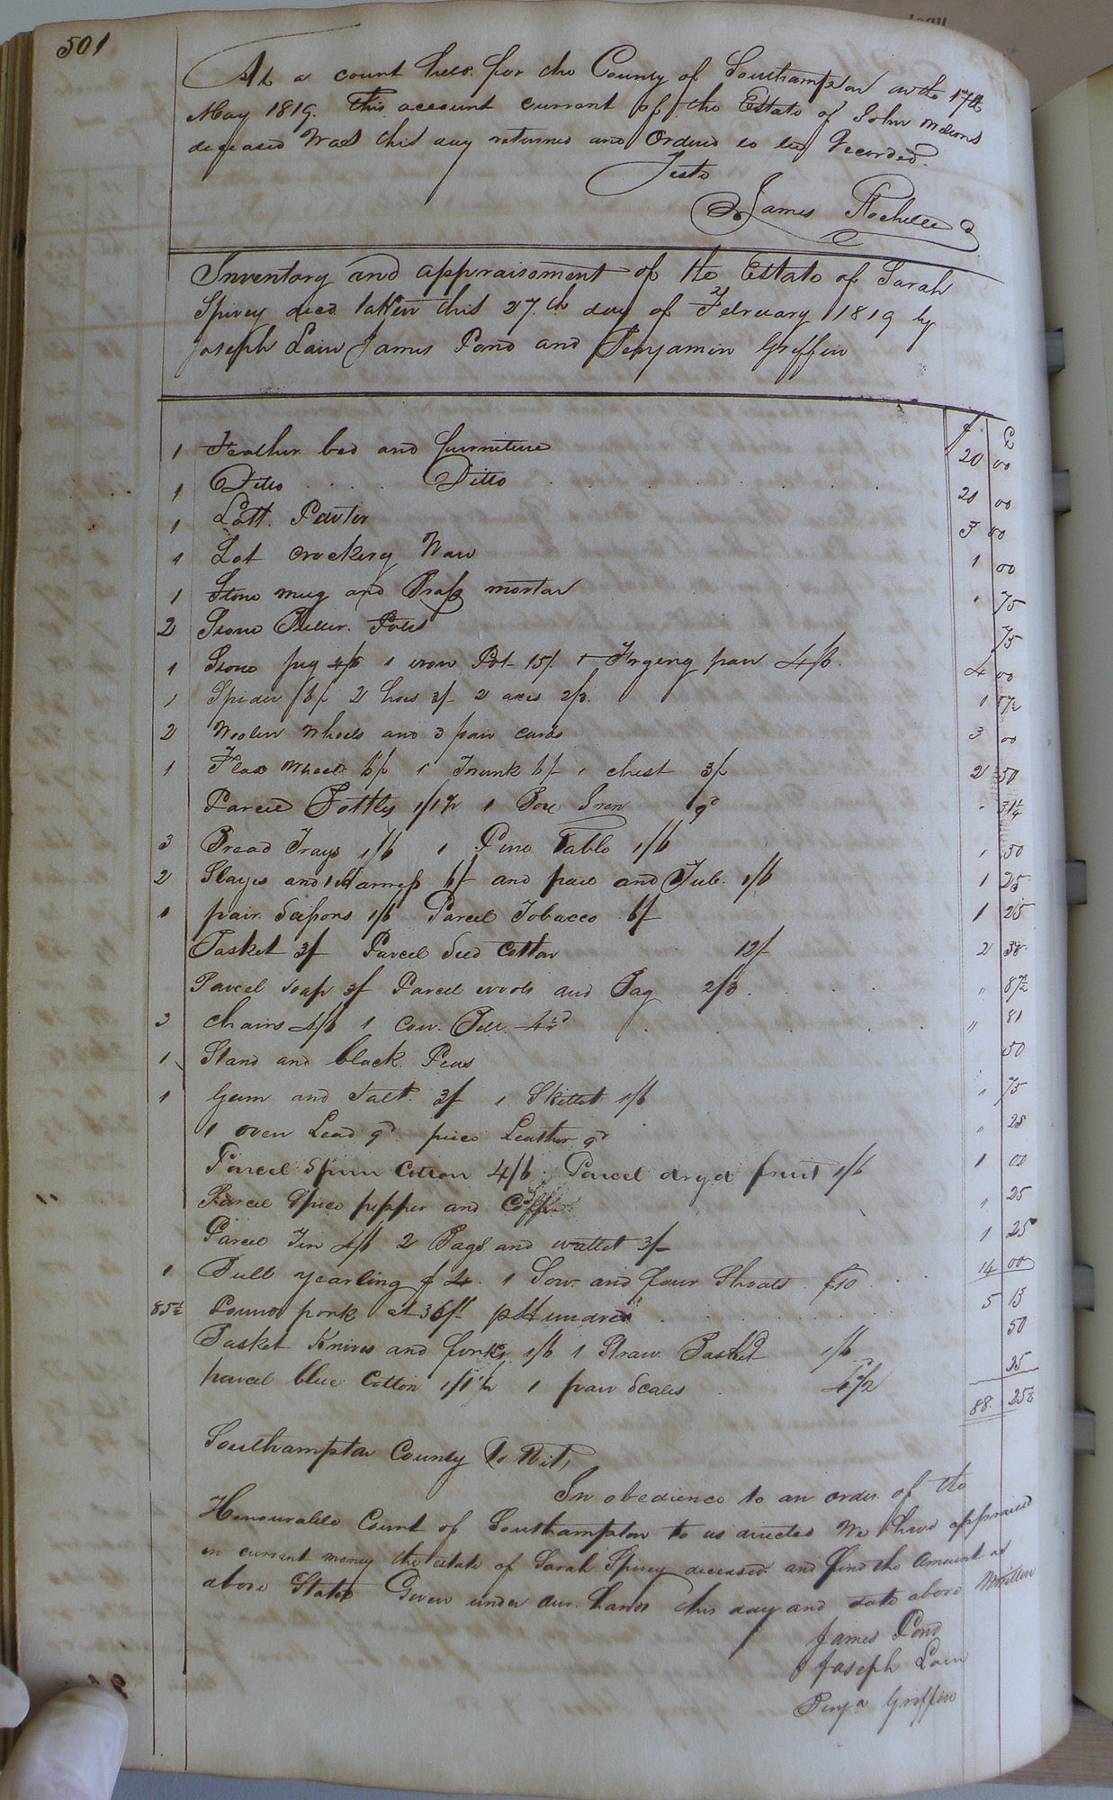 501
At a court held for the County of Southampton on the 17th
May 1819. This account current of the Estate of John
deceased was this day returned and Ordered to be Recorded.
Teste
James Rochelle
Inventory and appraisement of the Estate of Sarah
Spivey decd. taken this 27.th day of February 1819 by
Joseph Lain James Pond and Benjamin Griffin
$ C
1 Feather bed and furniture 20 00
1 Ditto . . . . Ditto 20 00
1 Lott. Peuter 3 00
1 Lot crockery Ware 1 00
1 Stone mug and Brass mortar 75
2 Stone Butter. Pots 75
1 Stone jug 4/6 1 iron Pot 15/ 1 Frying pan 4/6. 4 00
1 Spider /6/ 2 hoes 3/ 2 axes 2/3. 1 57½
2 Woolen Wheels and 3 pair cards 3 00
1 Flax Wheel 6/ 1 Trunk 6/ 1 chest 3/ 2 50
Parcel Bottles 1/1½ 1 Box Iron 9d 31¼
3 Bread Trays 1/6 1 Pine Table 1/6 50
2 Slayes and 1 Harness 6/ and pail and Tub. 1/6 1 25
1 pair. Scissors 1/6 Parcel Tobacco 6/ 1 25
Basket 3/ Parcel Seed Cotton 12/ 2 38
Parcel soap 3/ Parcel wool and Bag 2/3. 87½
3 chairs 4/6 1 Cow. Bell. 4½d 81
1 Stand and black. Peas 50
1 Gum and Salt. 3/ 1 Skillet 1/6 75
1 oven Lead 9d piece Leather 9d 25
Parcel Spun Cotton 4/6. Parcel dryd fruit 1/6 1 00
Parcel Spice pepper and Coffee 25
Parcel Tin 4/6 2 Bags and wallet 3/ 1 25
1 Bull yearling $4. 1 Sow. and four Shoats $10 14 00
85½ Pound pork at 36/ pr Hundred 5 13
Basket Knives and forks 1/6 1 Straw. Basket 1/6 50
parcel blue Cotton 1/1½ 1 pair Scales 4½ 25
88. 25½
Southampton County To Wit,
In obedience to an order of the
Honourable Court of Southampton to us directed We have appraised
in current money the estate of Sarah Spivey deceased and find the Amount as
above Stated Given under our hands this day and date above Written
James Pond
Joseph Lain
Benja Griffin